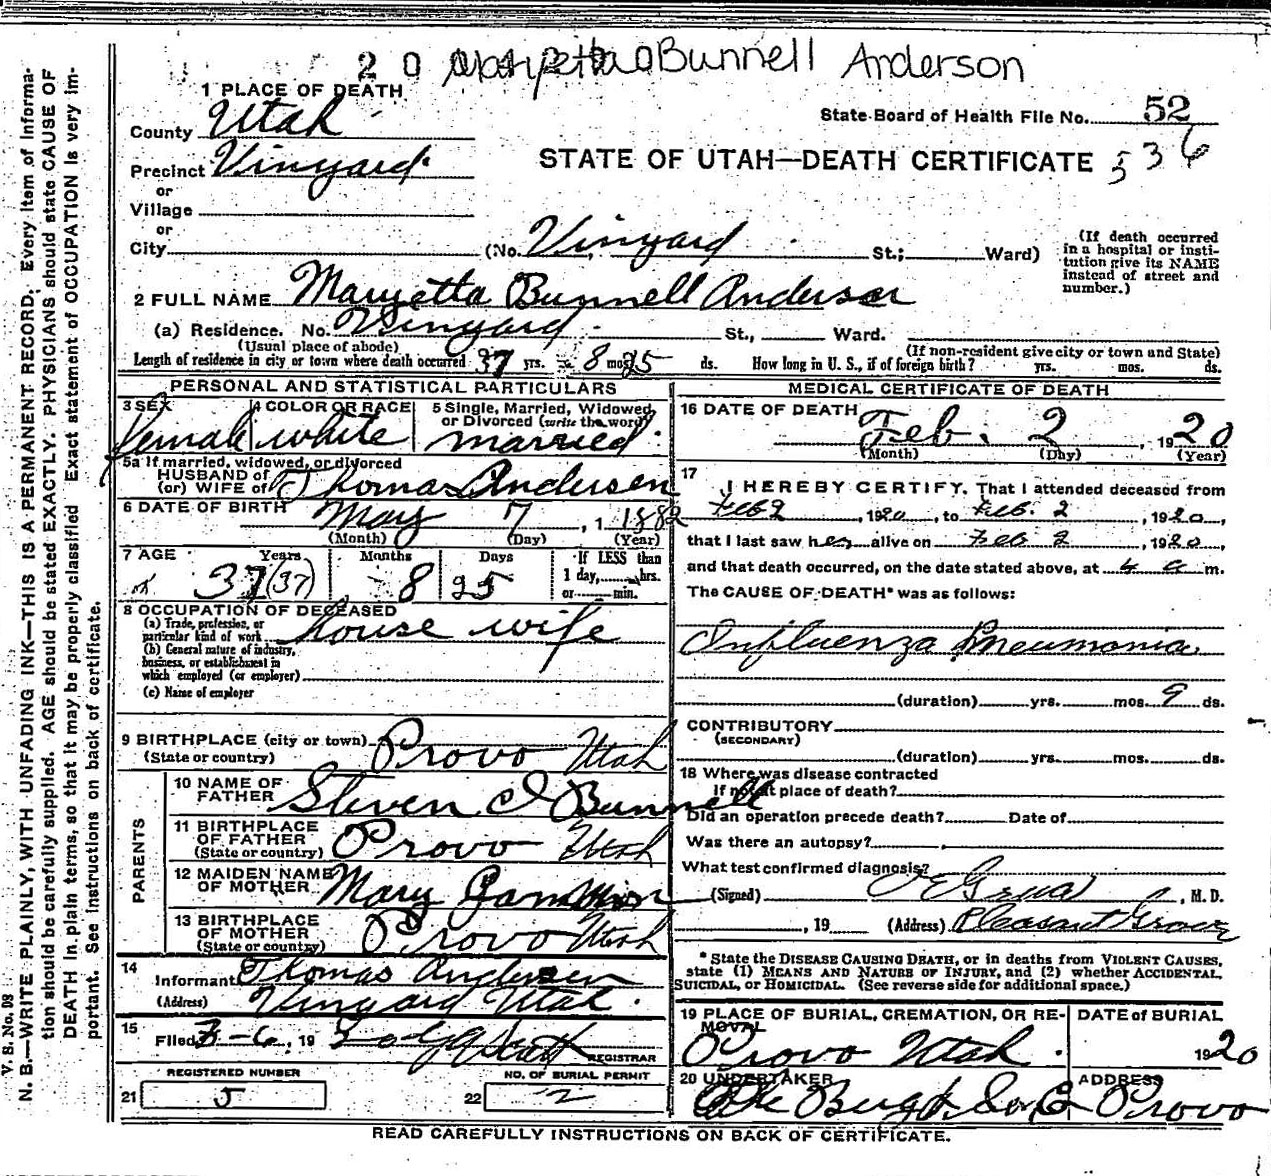 2 0 Bunnell Anderson
1 PLACE OF DEATH
County Utah
State Board of Health File No. 52
STATE OF UTAH—DEATH CERTIFICATE 536
Precinct Vinyard
or
Village
or
City (No. Vinyard St.; Ward)
(If death occurred in a hospital or institution give its NAME instead of street and number.)
2 FULL NAME Maryetta Bunnell Anderson
(a) Residence. No. Vinyard St., Ward.
(Usual place of abode) (If non-resident give city or town and State)
Length of residence in city or town where death occurred 37 yrs. 8 mos. 25 ds. How long in U. S., if of foreign birth? yrs. mos. ds.
PERSONAL AND STATISTICAL PARTICULARS
3 SEX 4 COLOR OR RACE 5 Single, Married, Widowed, or Divorced (write the word)
female white married
5a If married, widowed, or divorced
HUSBAND of
(or) WIFE of Thomas Andersen
6 DATE OF BIRTH May 7, 1 1882
(Month) (Day) (Year)
7 AGE Years Months Days If LESS than
37 (37) 8 25 1 day, hrs.
or min.
8 OCCUPATION OF DECEASED
(a) Trade, profession, or particular kind of work House wife
(b) General nature of industry, business, or establishment in which employed (or employer)
(c) Name of employer
9 BIRTHPLACE (city or town) Provo Utah
(State or country)
PARENTS
10 NAME OF FATHER Steven I Bunnell
11 BIRTHPLACE OF FATHER Provo Utah
(State or country)
12 MAIDEN NAME OF MOTHER Mary
13 BIRTHPLACE OF MOTHER Provo Utah
(State or country)
14 Informant Thomas Andersen
(Address) Vinyard Utah
15 Filed 19 REGISTRAR
REGISTERED NUMBER NO. OF BURIAL PERMIT
21 5 22 2
MEDICAL CERTIFICATE OF DEATH
16 DATE OF DEATH Feb. 2, 1920
(Month) (Day) (Year)
17 I HEREBY CERTIFY, That I attended deceased from
Feb 2, 1920, to Feb. 2, 1920,
that I last saw her alive on Feb 2, 1920,
and that death occurred, on the date stated above, at 4 a m.
The CAUSE OF DEATH* was as follows:
Influenza Pneumonia
(duration) yrs. mos. 9 ds.
CONTRIBUTORY
(SECONDARY)
(duration) yrs. mos. ds.
18 Where was disease contracted
If not at place of death?
Did an operation precede death? Date of
Was there an autopsy?
What test confirmed diagnosis?
(Signed) , M. D.
, 19 (Address) Pleasant Grove
* State the DISEASE CAUSING DEATH, or in deaths from VIOLENT CAUSES, state (1) MEANS AND NATURE OF INJURY, and (2) whether ACCIDENTAL, SUICIDAL, or HOMICIDAL. (See reverse side for additional space.)
19 PLACE OF BURIAL, CREMATION, OR REMOVAL DATE of BURIAL
Provo Utah. 1920
20 UNDERTAKER ADDRESS
Berg Provo
READ CAREFULLY INSTRUCTIONS ON BACK OF CERTIFICATE.
V. S. No. D8
N. B.—WRITE PLAINLY, WITH UNFADING INK—THIS IS A PERMANENT RECORD. Every item of information should be carefully supplied. AGE should be stated EXACTLY. PHYSICIANS should state CAUSE OF DEATH in plain terms, so that it may be properly classified. Exact statement of OCCUPATION is very important. See instructions on back of certificate.